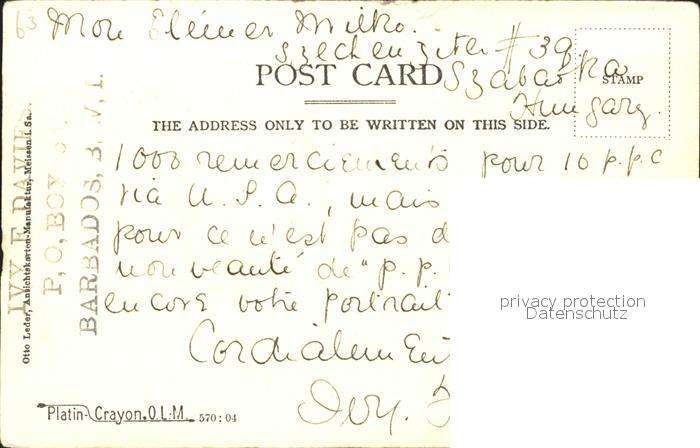 63 Mon Elémer Milko.
Szechenyiter # 39
POST CARD Szabatka
STAMP
Hungary.
THE ADDRESS ONLY TO BE WRITTEN ON THIS SIDE.
1000 remerciements pour 10 p.p.c
via U.S.A., mais
pour ce n'est pas d
nouveauté de "p.p.
encore votre portrait
Cordialement
Ivy.
IVY E DAVIE
P.O. BOX
BARBADOS, B.W.I.
Otto Leder, Ansichtskarten-Manufaktur, Meissen i. Sa.
Platin-Crayon.O.L.M. 570:04
privacy protection
Datenschutz